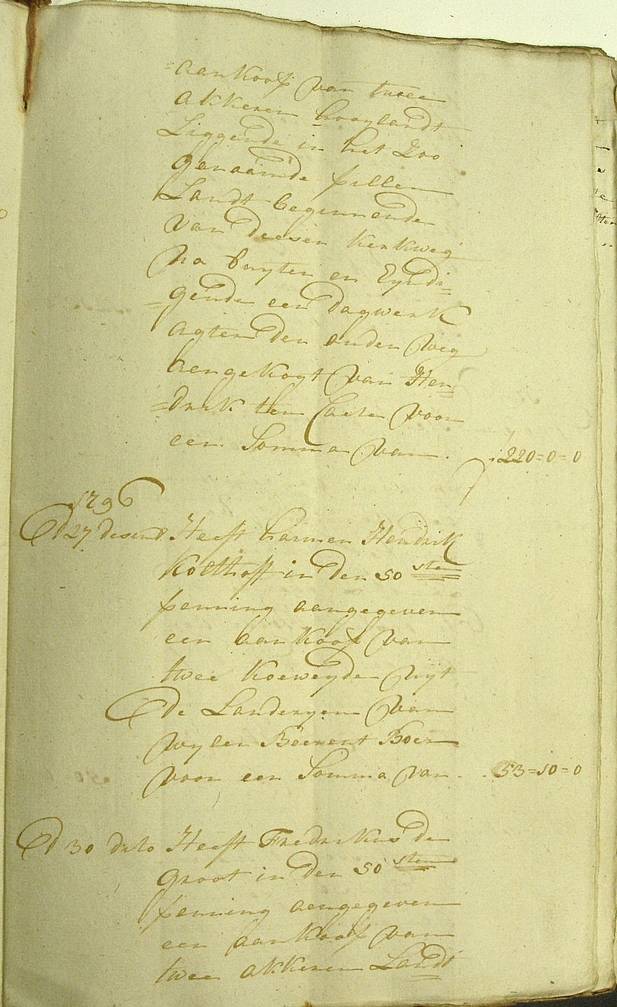 aankoop van twee
akkeren hooylandt
Liggende in het Zoo
genaamde pillen
Landt beginnende
van deesen kerkweg
na buyten en Eyndi-
=gende een dagwerk
agter den anden weg
aengekogt van Hen-
=drik ten Caete voor
een Somma van . 220=0=0
1796
Ed 27 desemb Heeft harmen Hendrik
Kolthoff in den 50 sten
penning aangegeven
een aankoop van
twee koeweyden uyt
de Landeryen van
wylen Beerent Boer
voor een Somma van . . 53=10=0
Ed 30 dito Heeft Fredrikus de
Groot in den 50 sten
penning aengegeven
een aankoop van
twee akkeren Landt